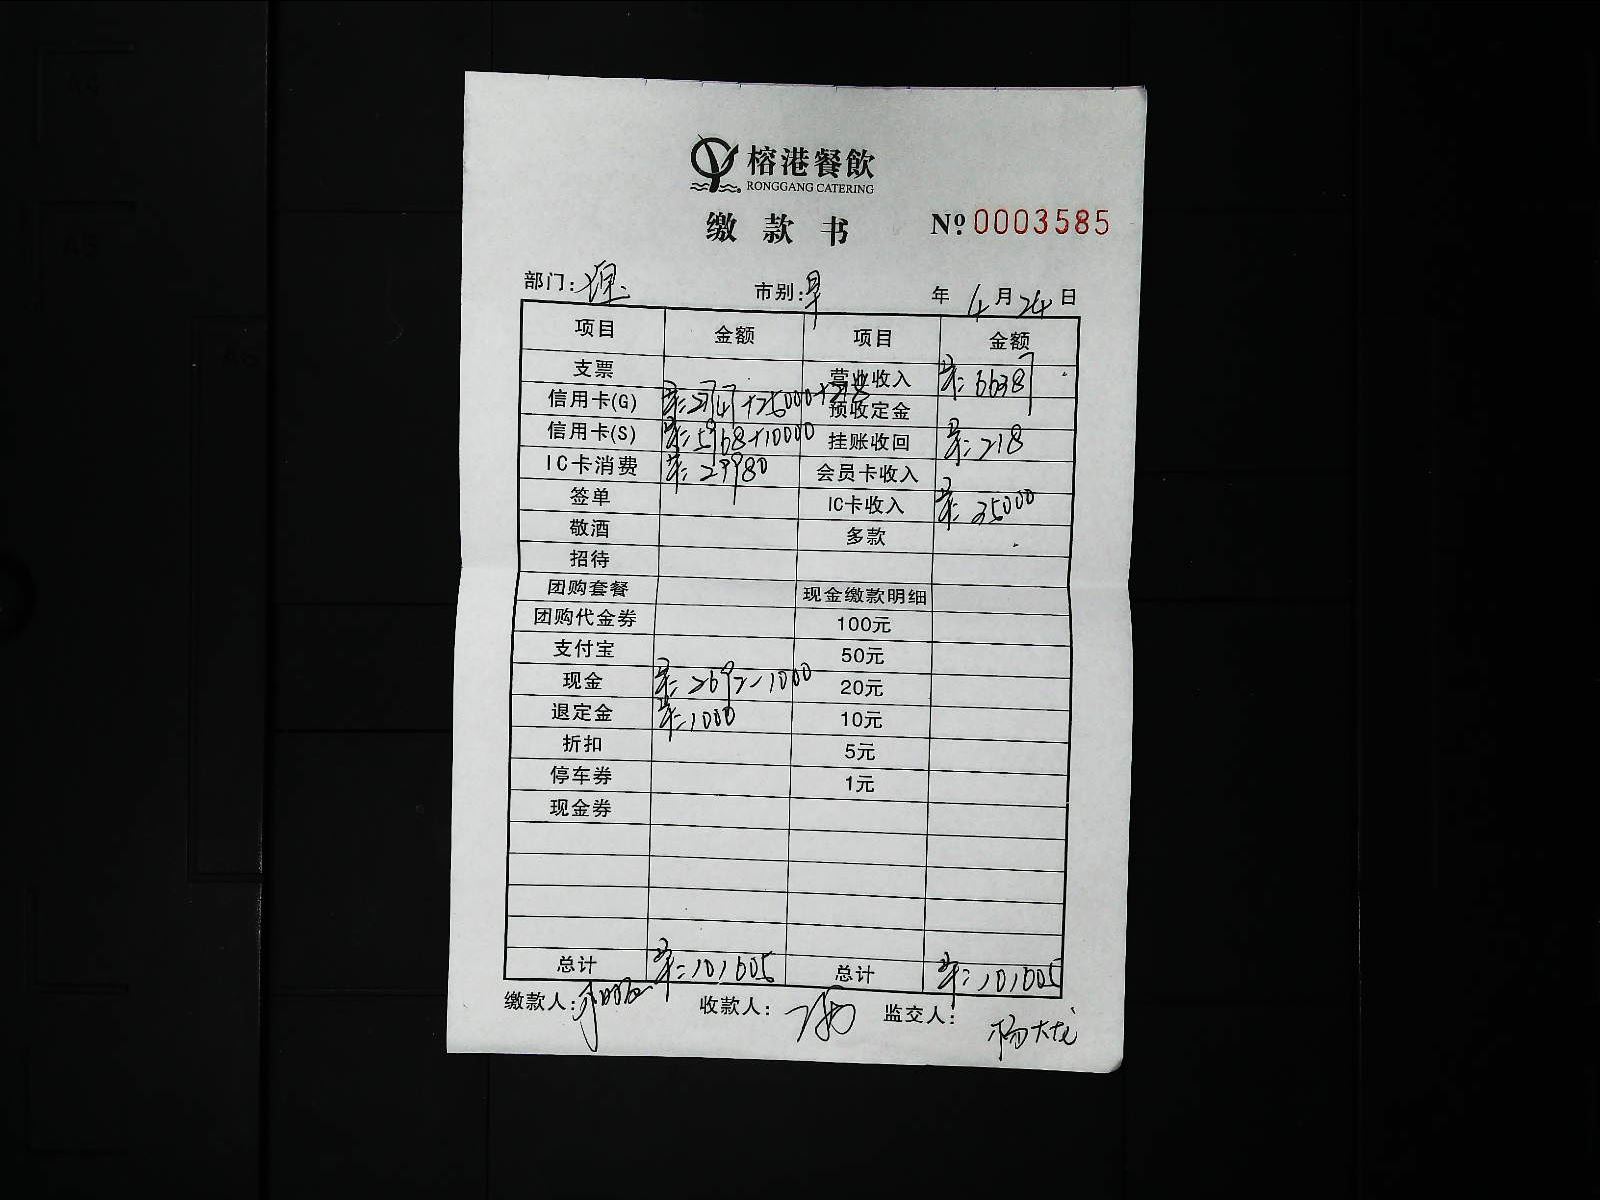 榕港餐飲
RONGGANG CATERING
缴款书 Nº 0003585
部门: 市别:早 年 4月24日
项目 金额 项目 金额
支票 营业收入 早:66387
信用卡(G) 早:27747+25000+218 预收定金
信用卡(S) 早:5968+10000 挂账收回 早:218
IC卡消费 早:29980 会员卡收入
签单 IC卡收入 早:35000
敬酒 多款
招待
团购套餐 现金缴款明细
团购代金券 100元
支付宝 50元
现金 早:2692-1000 20元
退定金 早:1000 10元
折扣 5元
停车券 1元
现金券
总计 早:101605 总计 早:101605
缴款人: 收款人: 监交人: 杨大龙
A4
A5
A6